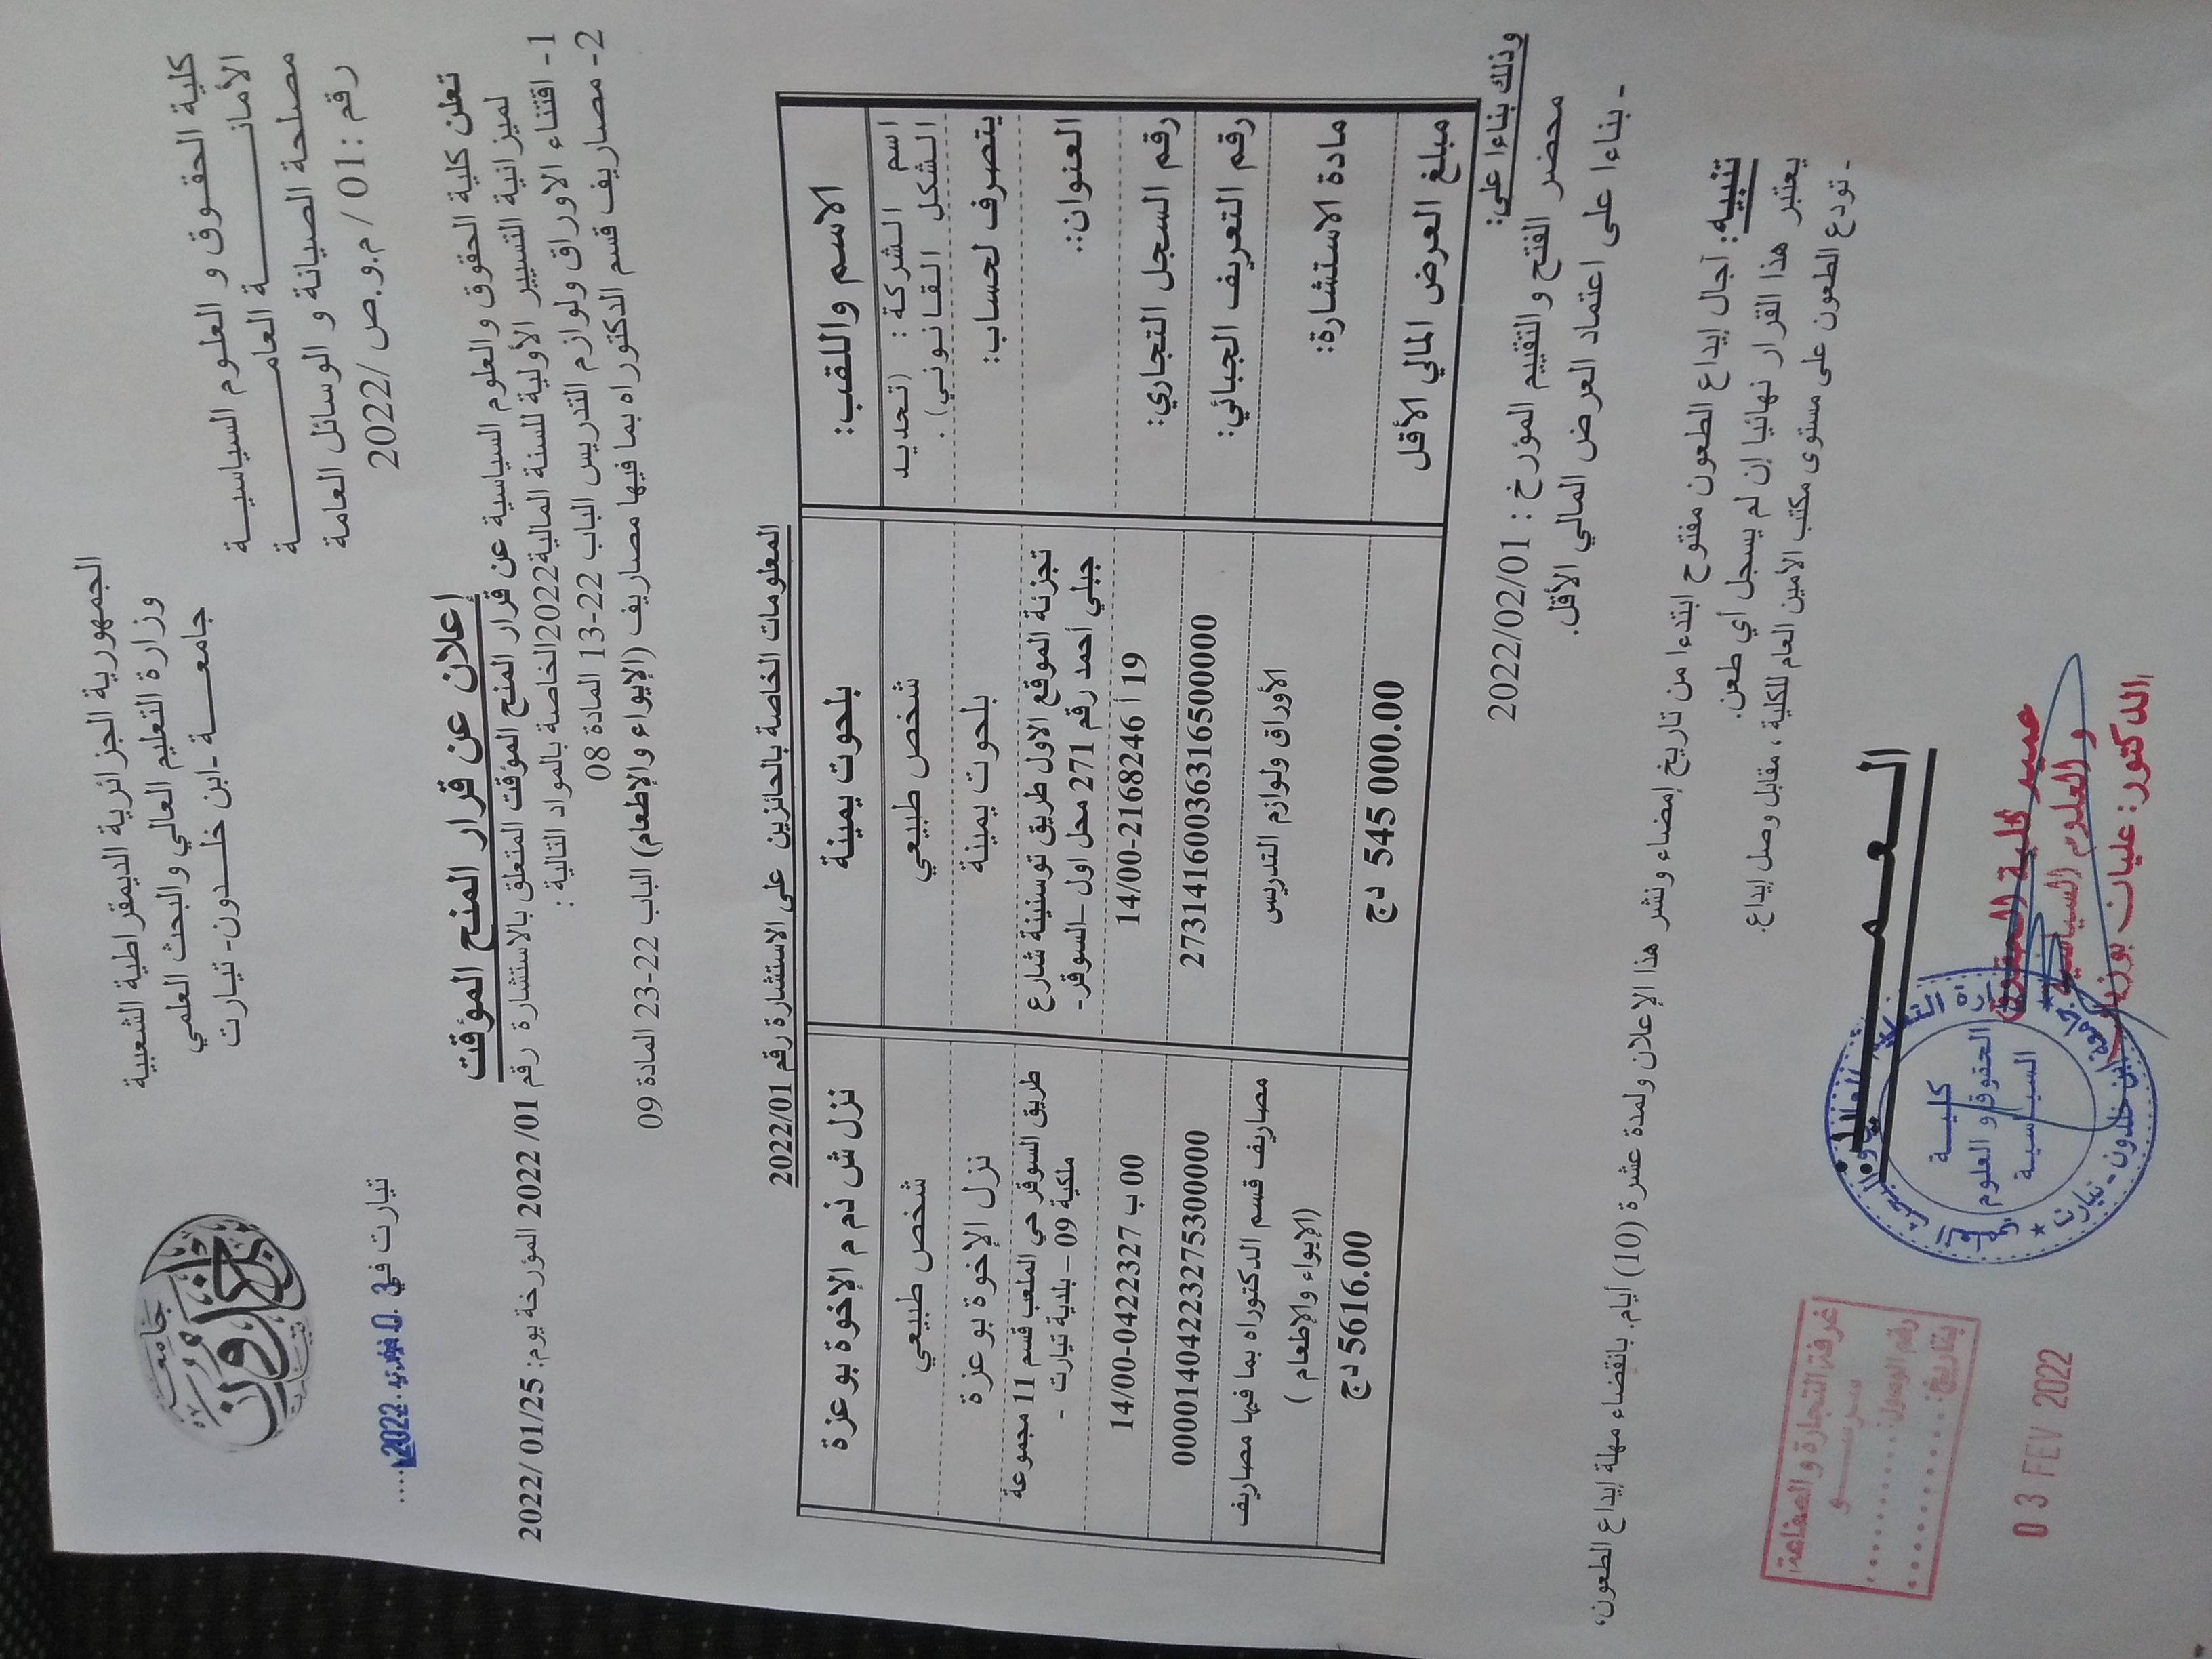 الجمهورية الجزائرية الديمقراطية الشعبية
وزارة التعليم العالي والبحث العلمي
جامعـــــة -ابن خلــدون- تيارت
كلية الحقـوق و العلـوم السياسيـة
الأمانـــــــــــة العامـــــــــــة
مصلحة الصيانة و الوسائل العامة
رقم :01 / م.و.ص /2022
جامعة
ابن خلدون
تيارت في 2022
إعلان عن قرار المنح المؤقت
تعلن كلية الحقوق والعلوم السياسية عن قرار المنح المؤقت المتعلق بالاستشارة رقم 01/ 2022 المؤرخة يوم: 2022/ 01/25
لميزانية التسيير الأولية للسنة المالية2022الخاصة بالمواد التالية :
1- اقتناء الاوراق ولوازم التدريس الباب 22-13 المادة 08
2- مصاريف قسم الدكتوراه بما فيها مصاريف (الإيواء والإطعام) الباب 22-23 المادة 09
المعلومات الخاصة بالحائزين على الاستشارة رقم 2022/01
الاسم واللقب: بلحوت يمينة نزل ش ذم م الإخوة بوعزة
اسم الشركة : (تحديد الشكل القانوني). شخص طبيعي شخص طبيعي
يتصرف لحساب: بلحوت يمينة نزل الإخوة بوعزة
العنوان:: تجزئة الموقع الاول طريق توسنينة شارع جبلي أحمد رقم 271 محل اول -السوقر- طريق السوقر حي الملعب قسم 11 مجموعة ملكية 09 – بلدية تيارت -
رقم السجل التجاري: 19 ا 2168246-14/00 00 ب 0422327-14/00
رقم التعريف الجبائي: 27314160036316500000 00001404223275300000
مادة الاستشارة: الأوراق ولوازم التدريس مصاريف قسم الدكتوراه بما فيها مصاريف (الإيواء والإطعام )
مبلغ العرض المالي الأقل 545 000.00 دج 5616.00 دج
وذلك بناءا على:
محضر الفتح والتقييم المؤرخ : 2022/02/01
- بناءا على اعتماد العرض المالي الأقل.
تنبيه: آجال إيداع الطعون مفتوح ابتدءا من تاريخ إمضاء ونشر هذا الإعلان ولمدة عشرة (10) أيام. بانقضاء مهلة إيداع الطعون،
يعتبر هذا القرار نهائيا إن لم يسجل أي طعن.
- تودع الطعون على مستوى مكتب الأمين العام للكلية ، مقابل وصل إيداع.
عميد كلية الحقوق
والعلوم السياسية
الدكتور: عليان بوزيان
كليـة
الحقوق و العلوم
السياسية
جامعة ابن خلدون - تيارت
غرفة التجارة و الصناعة
رقم الوصول
بتاريخ:
03 FEV 2022